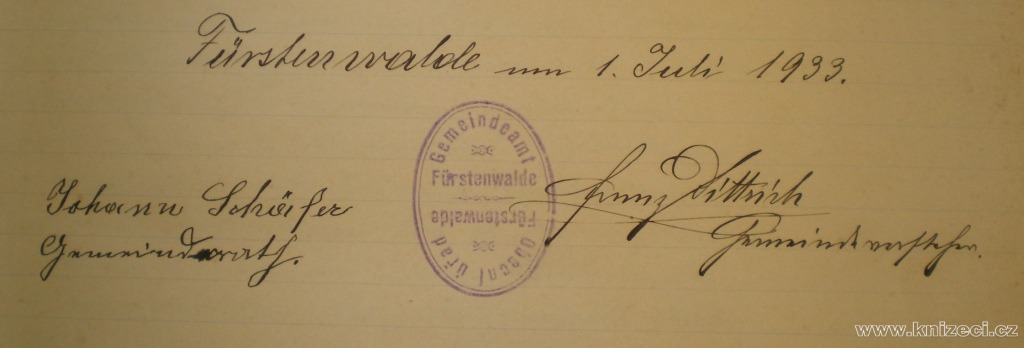 Fürstenwalde um 1. Juli 1933.
Gemeindeamt
Fürstenwalde
Fürstenwalde
Obecní úřad
Johann Schäfer
Gemeinderath.
Franz Dittrich
Gemeindevorsteher.
www.knizeci.cz